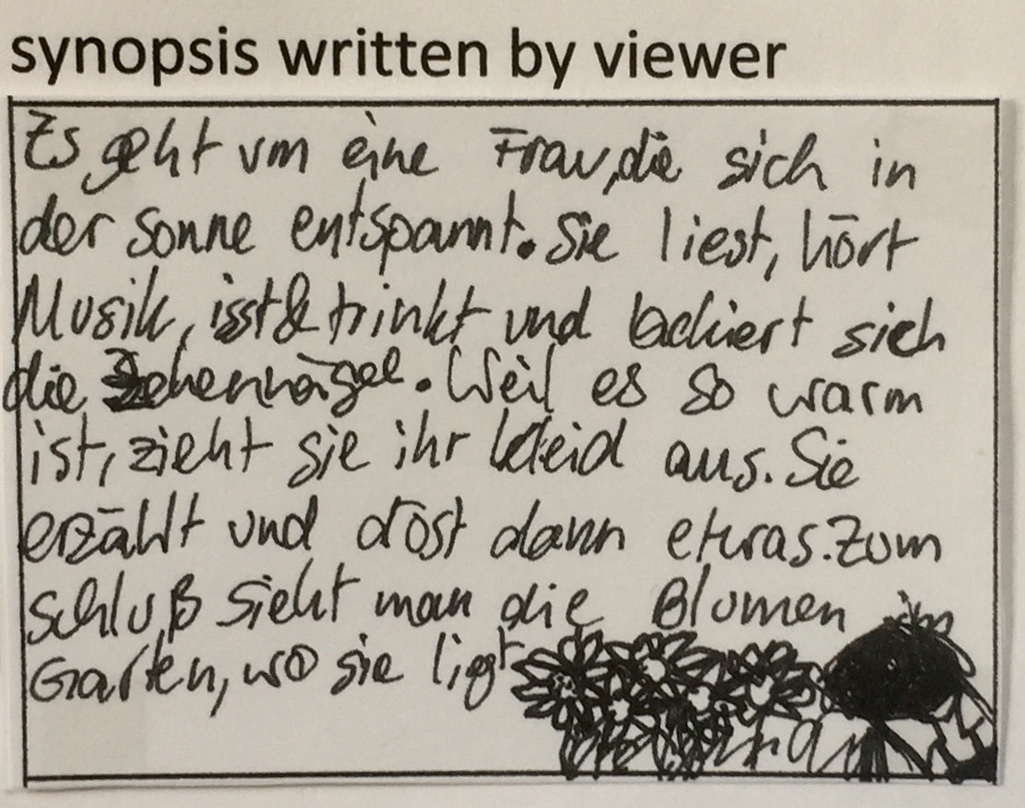 synopsis written by viewer
Es geht um eine Frau, die sich in
der Sonne entspannt. Sie liest, hört
Musik, isst & trinkt und lackiert sich
die Zehennägel. Weil es so warm
ist, zieht sie ihr Kleid aus. Sie
erzählt und döst dann etwas. Zum
Schluß sieht man die Blumen im
Garten, wo sie liegt